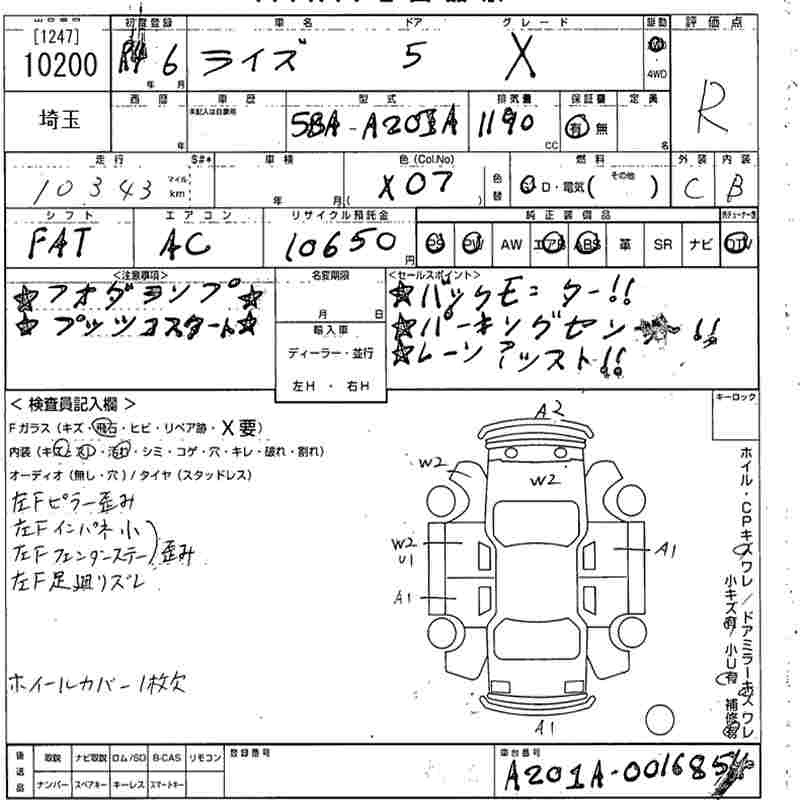 [1247]
10200
埼玉
初度登録
6
年 月
車名
ライズ
ドア
5
グレード
X
駆動
4WD
評価点
R
西暦
年
車歴
未記入は自家用
型式
5BA-A201A
排気量
1190
CC
保証書
有 無
定員
名
走行
10343
マイル
km
S#*
車検
年 月
色(Col.No)
X07
色替
燃料
G D・電気( その他 )
外装
C
内装
B
シフト
FAT
エアコン
AC
リサイクル預託金
10650
円
純正装備品
PS PW AW エアB ABS 革 SR ナビ
<注意事項>
名変期限
月 日
輸入車
ディーラー・並行
左H ・ 右H
<セールスポイント>
☆バックモニター!!
☆パーキングセンサー!!
☆レーンアシスト!!
<検査員記入欄>
Fガラス(キズ・飛石・ヒビ・リペア跡・X要)
内装(キズ・スレ・汚れ・シミ・コゲ・穴・キレ・破れ・割れ)
オーディオ(無し・穴)/タイヤ(スタッドレス)
左Fピラー歪み
左Fインパネ小
左Fフェンダーステー)歪み
左F足廻りズレ
ホイールカバー1枚欠
A2
W2
W2
W2
U1
A1
A1
A1
キーロック
ホイル・CPキズワレ/ドアミラーキズワレ
小キズ有/小U有 補修有
後送品
取説 ナビ取説 ロム/SD B-CAS リモコン
ナンバー スペアキー キーレス スマートキー
登録番号
車台番号
A201A-001685